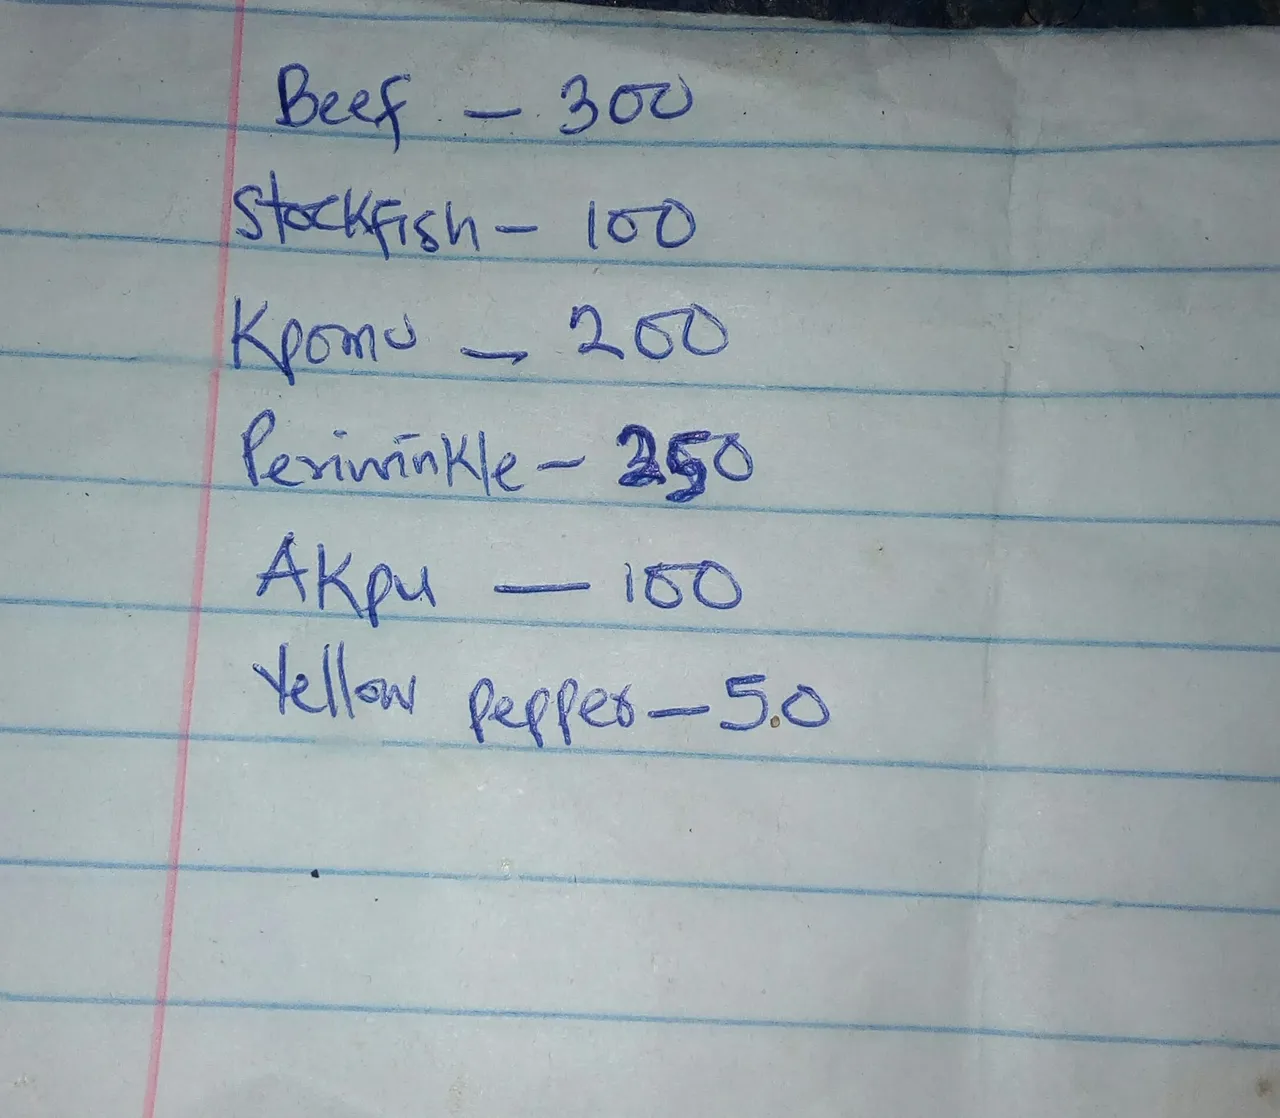 Beef - 300
Stockfish - 100
Kpomo - 200
Periwinkle - 250
Akpu - 100
Yellow pepper - 50